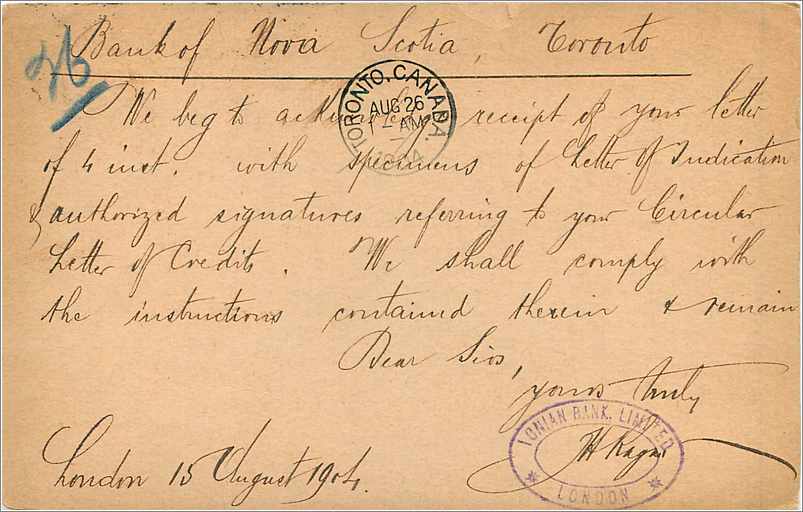 Bank of Nova Scotia, Toronto
26
We beg to ackn receipt of your letter
of 4 inst. with specimens of Letter of Indication
& authorized signatures referring to your Circular
Letter of Credits. We shall comply with
the instructions contained therein & remain
Dear Sirs,
yours truly
London 15 August 1904.
TORONTO, CANADA.
AUG 26
1 - AM
IONIAN BANK, LIMITED
LONDON